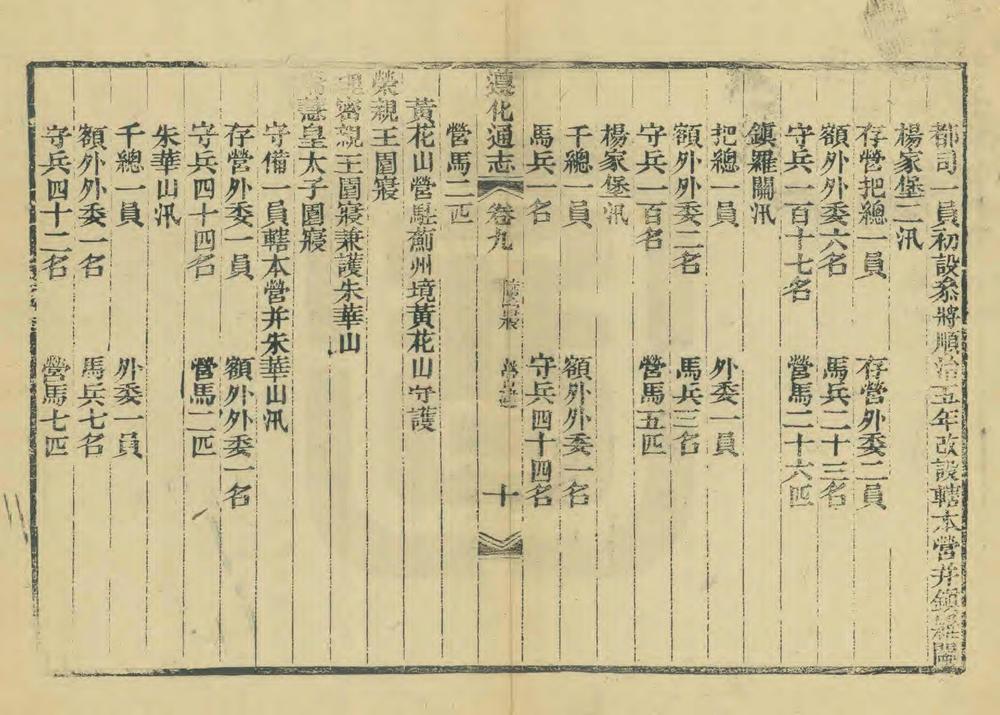 都司一員初設叅將順治五年改設轄本營并鎮羅關
楊家堡二汛
存營把總一員 存營外委二員
額外外委六名 馬兵二十三名
守兵一百十七名 營馬二十六匹
鎮羅關汛
把總一員 外委一員
額外外委二名 馬兵三名
守兵一百名 營馬五匹
楊家堡汛
千總一員 額外外委一名
馬兵一名 守兵四十四名
遵化通志 卷九 十
營馬二匹
黃花山營駐薊州境黃花山守護
榮親王園寢
理密親王園寢兼護朱華山
端慧皇太子園寢
守備一員轄本營并朱華山汛
存營外委一員 額外外委一名
守兵四十四名 營馬二匹
朱華山汛
千總一員 外委一員
額外外委一名 馬兵七名
守兵四十二名 營馬七匹